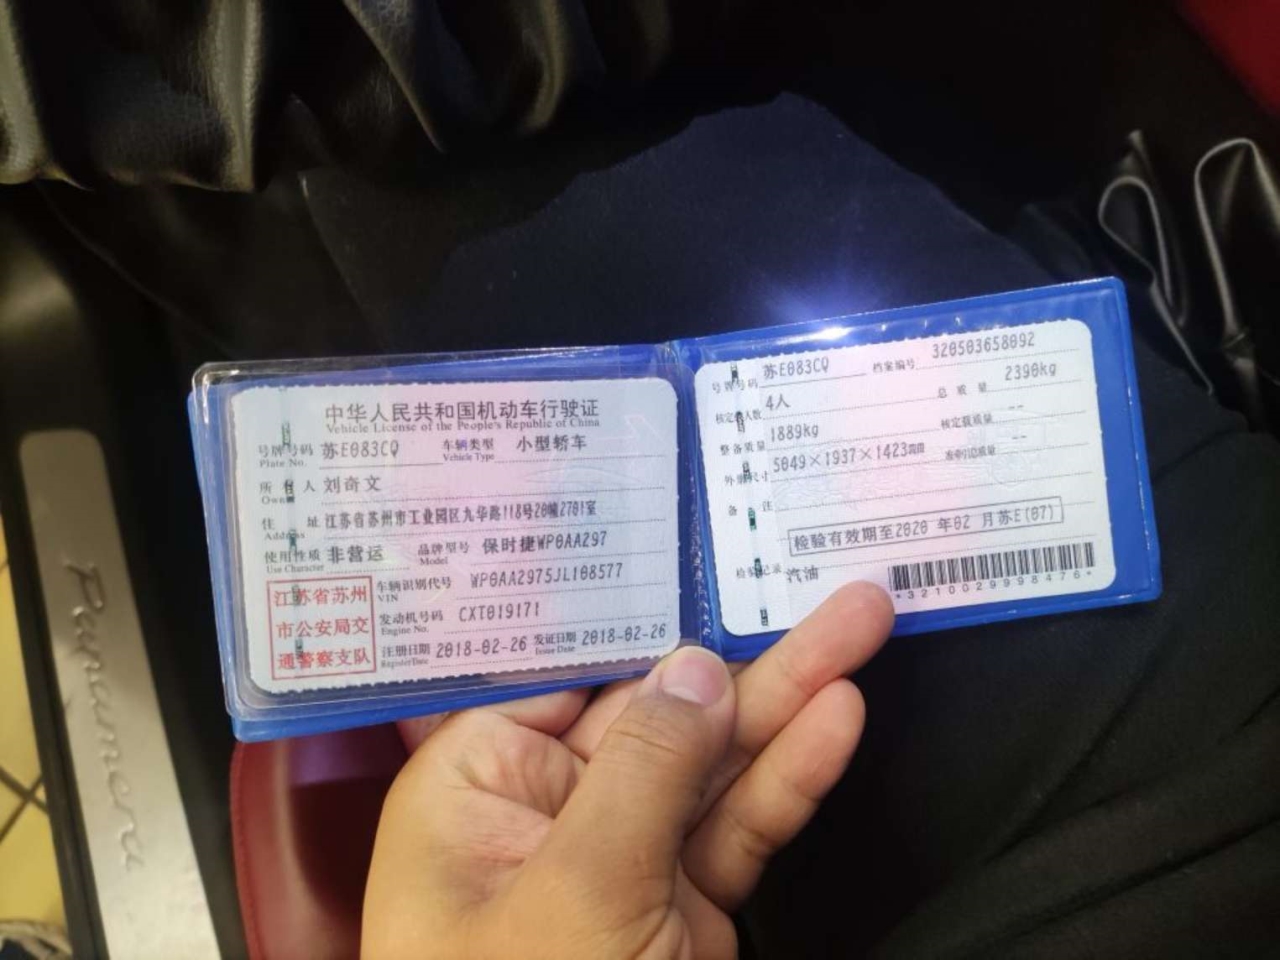 中华人民共和国机动车行驶证
Vehicle License of the People's Republic of China
号牌号码 苏E083CQ 车辆类型 小型轿车
Plate No. Vehicle Type
所有人 刘奇文
Owner
住址 江苏省苏州市工业园区九华路118号20幢2701室
Address
使用性质 非营运 品牌型号 保时捷WP0AA297
Use Character Model
江苏省苏州
市公安局交
通警察支队
车辆识别代号 WP0AA2975JL108577
VIN
发动机号码 CXT019171
Engine No.
注册日期 2018-02-26 发证日期 2018-02-26
Register Date Issue Date
号牌号码 苏E083CQ 档案编号 320503658092
核定载人数 4人 总质量 2390kg
整备质量 1889kg 核定载质量 --
外廓尺寸 5049×1937×1423mm 准牵引总质量 --
备注
检验有效期至2020 年02 月苏E(07)
检验记录 汽油
*3210029998476*
Panamera